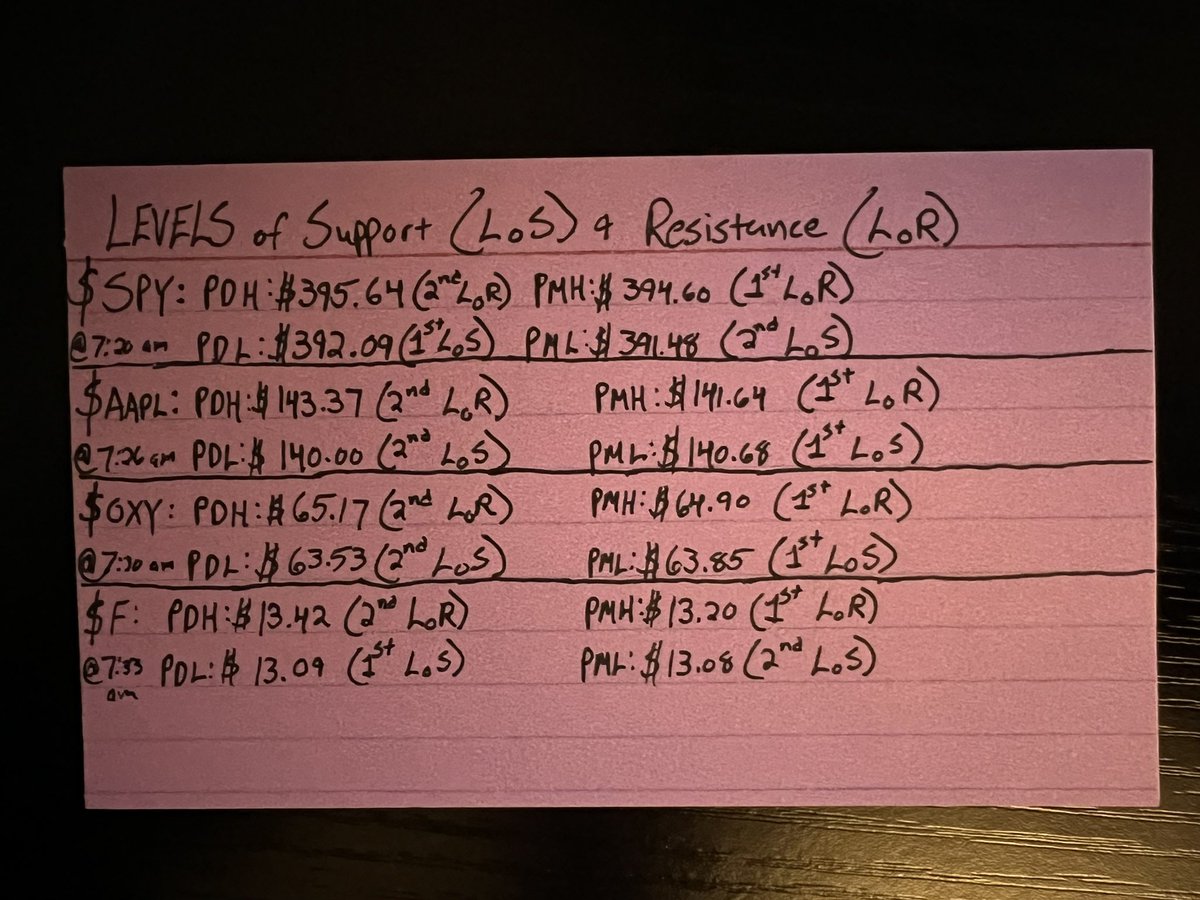 LEVELS of Support (LoS) & Resistance (LoR)
$SPY: PDH:$395.64 (2nd LoR) PMH:$394.60 (1st LoR)
@7:20 am PDL:$392.09 (1st LoS) PML:$391.48 (2nd LoS)
$AAPL: PDH:$143.37 (2nd LoR) PMH:$141.64 (1st LoR)
@7:26 am PDL:$140.00 (2nd LoS) PML:$140.68 (1st LoS)
$OXY: PDH:$65.17 (2nd LoR) PMH:$64.90 (1st LoR)
@7:30 am PDL:$63.53 (2nd LoS) PML:$63.85 (1st LoS)
$F: PDH:$13.42 (2nd LoR) PMH:$13.20 (1st LoR)
@7:33 am PDL:$13.09 (1st LoS) PML:$13.08 (2nd LoS)